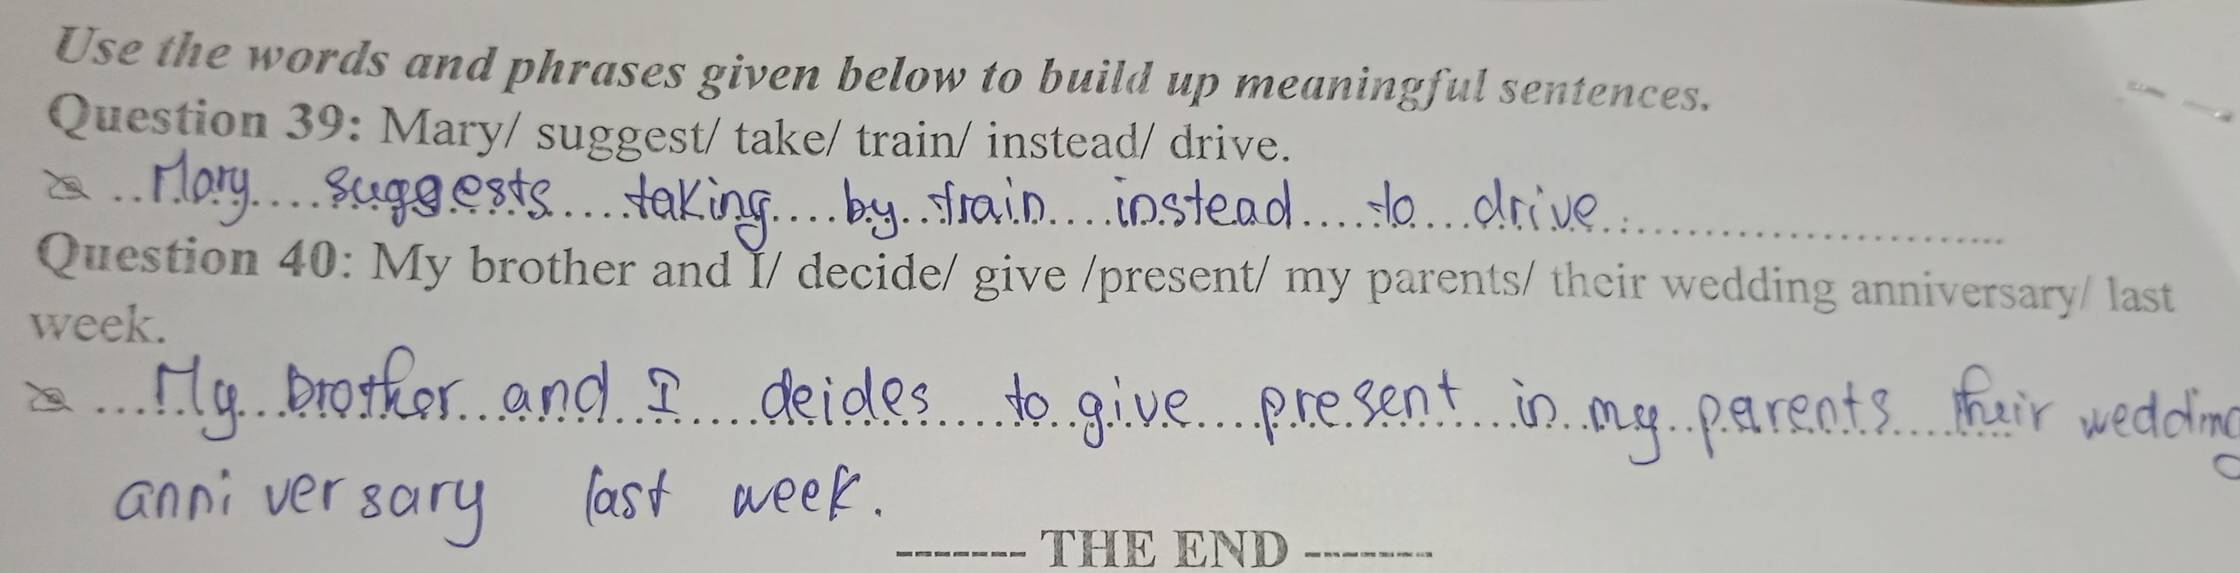 Use the words and phrases given below to build up meaningful sentences.
Question 39: Mary/ suggest/ take/ train/ instead/ drive.
Mary suggests taking by train instead to drive.
Question 40: My brother and I/ decide/ give /present/ my parents/ their wedding anniversary/ last
week.
My brother and I deides to give present in my parents their wedding
anni versary last week.
------- THE END -------